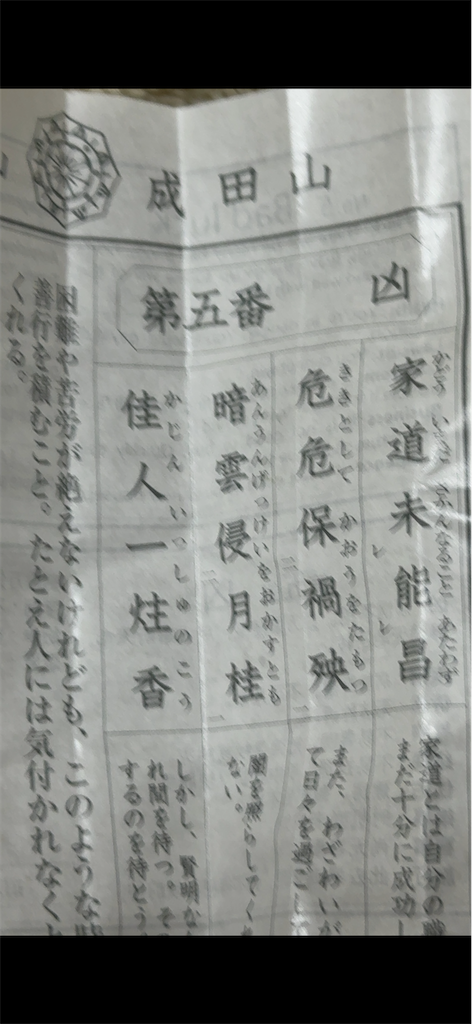 成田山
第五番 凶
家道未能昌
かどう いまだ さかんなること あたわず
レ レ
危危保禍殃
ききとして かおうをたもつ
二 一
暗雲侵月桂
あんうんげっけいをおかすとも
二 一
佳人一炷香
かじん いっしゅのこう
家道とは自分の職
まだ十分に成功し
また、わざわいが
て日々を過ごして
闇を照らしてくれ
ない。
しかし、賢明な
れ間を待つ。そ
するのを待とう
困難や苦労が絶えないけれども、このような時
善行を積むこと。たとえ人には気付かれなくと
くれる。